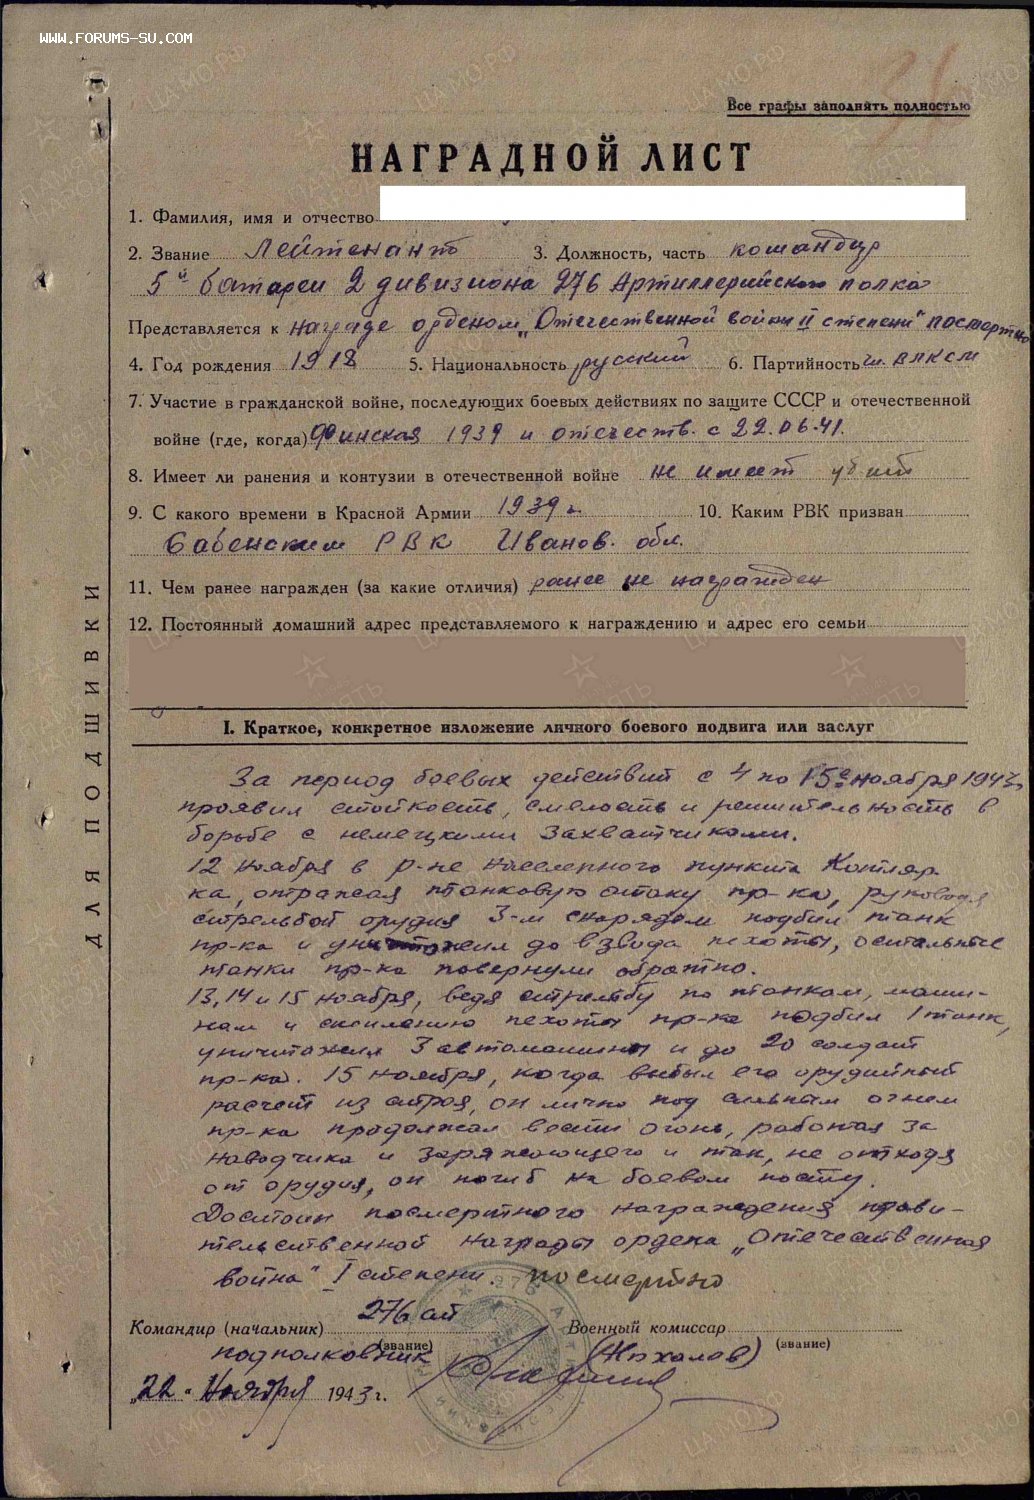 WWW.FORUMS-SU.COM
Все графы заполнять полностью
НАГРАДНОЙ ЛИСТ
1. Фамилия, имя и отчество
2. Звание Лейтенант 3. Должность, часть командир
5й батареи 2 дивизиона 276 Артиллерийского полка
Представляется к награде орденом „Отечественной войны II степени" посмертно
4. Год рождения 1918 5. Национальность русский 6. Партийность чл. ВЛКСМ
7. Участие в гражданской войне, последующих боевых действиях по защите СССР и отечественной
войне (где, когда) Финская 1939 и отечеств. с 22.06.41.
8. Имеет ли ранения и контузии в отечественной войне не имеет убит
9. С какого времени в Красной Армии 1939 г. 10. Каким РВК призван
РВК Иванов. обл.
11. Чем ранее награжден (за какие отличия) ранее не награжден
12. Постоянный домашний адрес представляемого к награждению и адрес его семьи
I. Краткое, конкретное изложение личного боевого подвига или заслуг
За период боевых действий с 4 по 15е ноября 1943г.
проявил стойкость, смелость и решительность в
борьбе с немецкими захватчиками.
12 ноября в р-не населенного пункта Котляр
ка, отражая танковую атаку пр-ка, руководя
стрельбой орудия 3-м снарядом подбил танк
пр-ка и уничтожил до взвода пехоты, остальные
танки пр-ка повернули обратно.
13, 14 и 15 ноября, ведя стрельбу по танкам, маши-
нам и скоплению пехоты пр-ка подбил 1 танк,
уничтожил 3 автомашины и до 20 солдат
пр-ка. 15 ноября, когда выбыл его орудийный
расчет из строя, он лично под сильным огнем
пр-ка продолжал вести огонь, работая за
наводчика и заряжающего и так, не отходя
от орудия, он погиб на боевом посту.
Достоин посмертного награждения прави-
тельственной награды ордена „Отечественная
война" I степени. посмертно
276 ап
Командир (начальник) Военный комиссар
(звание) (звание)
подполковник
„22" Ноября 1943 г.
ДЛЯ ПОДШИВКИ